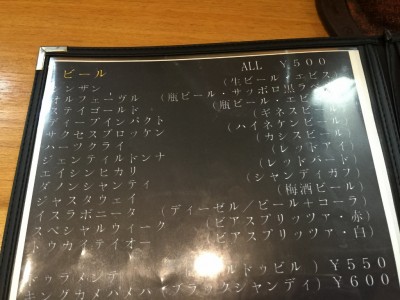 ビール ALL ¥500
シザン (生ビール・エビス
オルフェーヴル (瓶ビール・サッポロ黒ラ
ステイゴールド (瓶ビール・エビ
ディープインパクト (ギネスビー
サクセスブロッケン (ハイネケンビー
ハーツクライ (カシスビー
ジェンティルドンナ (レッドアイ)
エイシンヒカリ (レッドバード)
ダノンシャンティ (シャンディガフ)
ジャスタウェイ (梅酒ビール)
イスラボニータ (ディーゼル/ビール+コーラ)
スペシャルウィーク (ビアスプリッツァ・赤)
トウカイテイオー (ビアスプリッツァ・白)
ドゥラメンテ ルドゥビル) ¥550
キングカメハメハ (ブラックシャンディ) ¥600